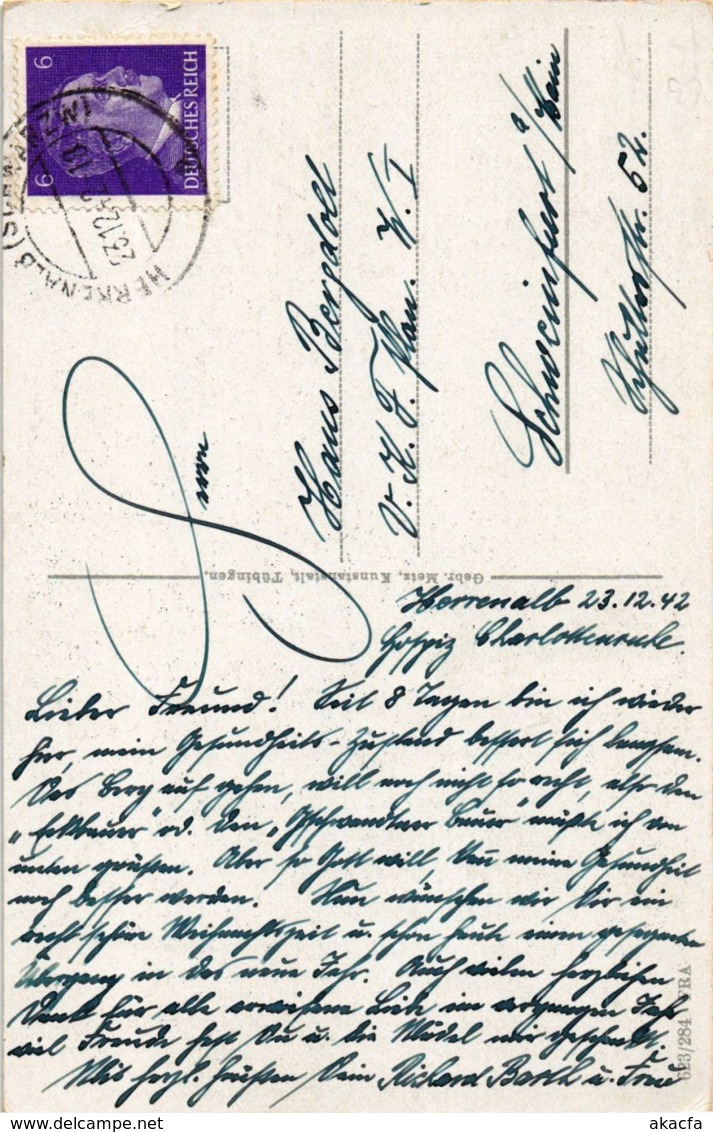 6 6
DEUTSCHES REICH
HERRENALB (SCHWARZW)
23.12.42
von
Hans Bergdoll
V. K. F. Plan. W. I
Schweinfurt a/Main
Schultesstr. 52.
Gebr. Metz, Kunstanstalt, Tübingen.
Herrenalb 23.12.42
Hospiz Charlottenruhe.
Lieber Freund! Seit 8 Tagen bin ich wieder
hier, mein Gesundheits-Zustand bessert sich langsam.
Das Berg auf gehen, will noch nicht so recht, also den
„Eckbauer" od. den „Gschwandtner Bauer" müßte ich von
unten grüßen. Aber so Gott will, kann meine Gesundheit
noch besser werden. Nun wünschen wir Dir ein
recht schöne Weihnachtszeit u. schon heute einen gesegneten
Übergang in das neue Jahr. Auch vielen herzlichen
Dank für alle erwiesene Liebe im vergangen Jahr
viel Freude hast Du u. die Mädel mir geschenkt.
Mit herzl. Grüßen Dein Richard Barth u. Frau
623/284 TRA
akacfa